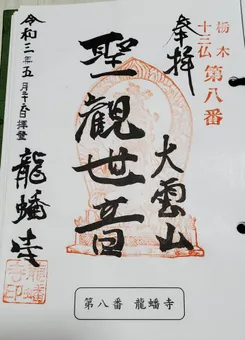 栃木
十三仏 第八番
奉拝
大雲山
聖觀世音
令和三年五月二十六日 拝登
龍蟠寺
龍蟠寺印
第八番 龍蟠寺